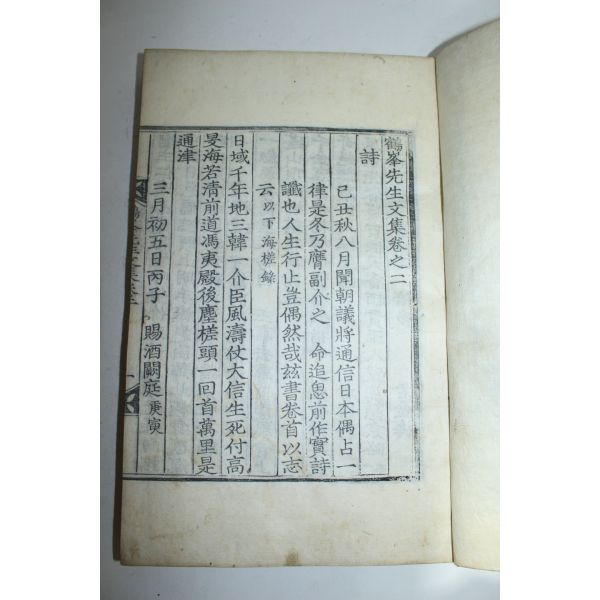 鶴峯先生文集卷之二
詩
己丑秋八月聞朝議將通信日本偶占一
律是冬乃膺副介之 命追思前作實詩
讖也人生行止豈偶然哉玆書卷首以志
云以下海槎錄
日域千年地三韓一介臣風濤仗大信生死付高
旻海若淸前道馮夷殿後塵槎頭一回首萬里是
通津
三月初五日丙子 賜酒闕庭庚寅